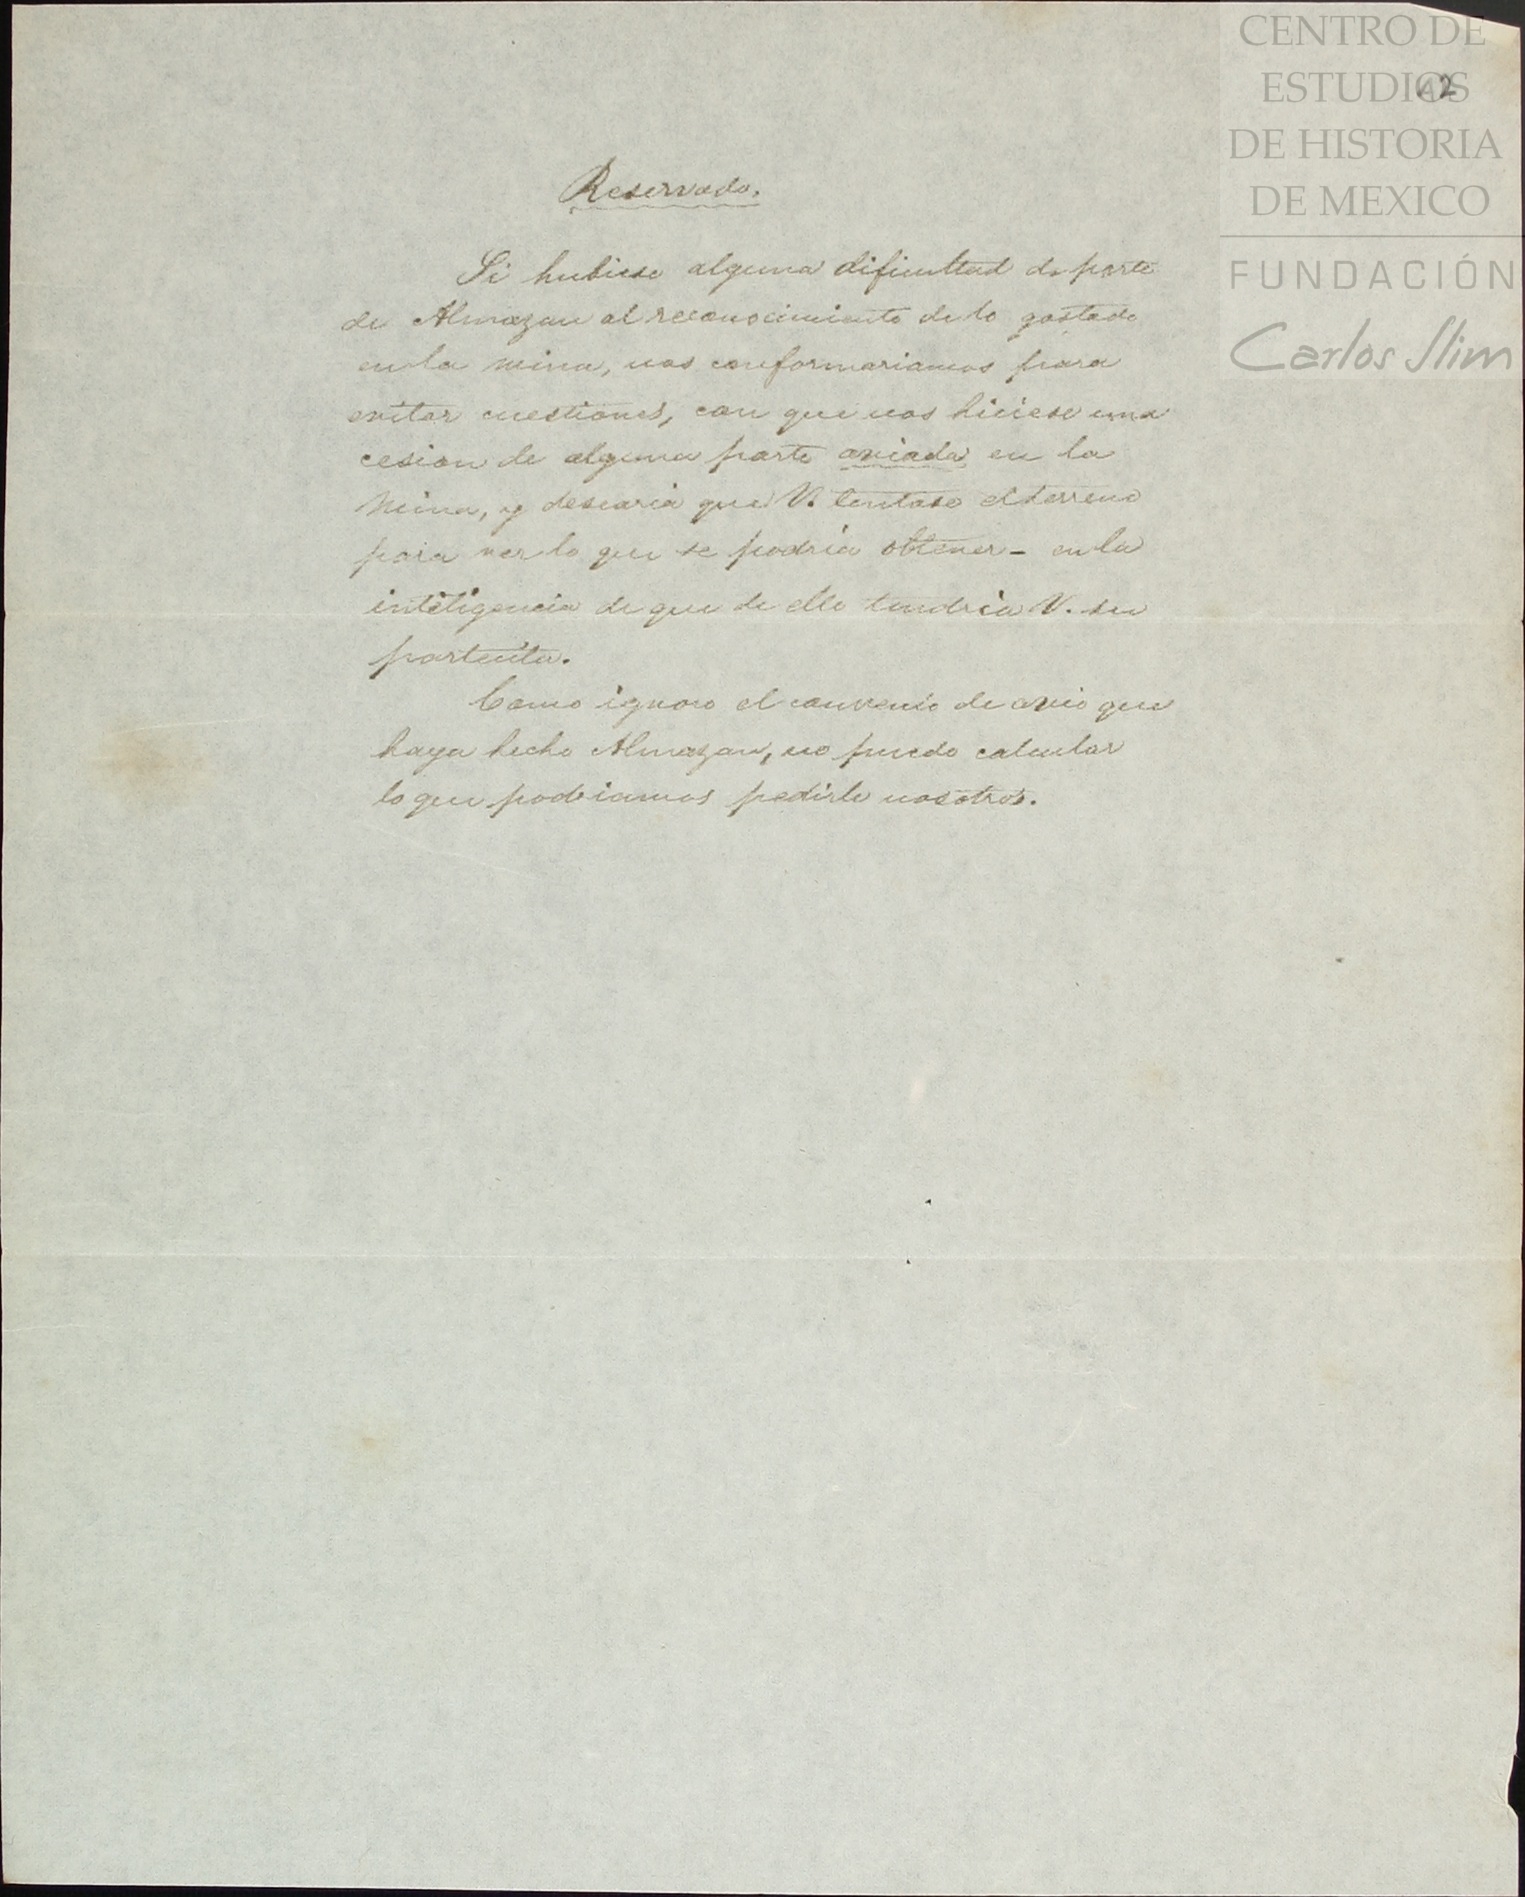 CENTRO DE
ESTUDIOS
DE HISTORIA
DE MEXICO
FUNDACIÓN
Carlos Slim
42
Reservado.
Si hubiese alguna dificultad de parte
de Almazan al reconocimiento de lo gastado
en la mina, nos conformariamos para
evitar cuestiones, con que nos hiciese una
cesion de alguna parte aviada en la
Mina, y desearia que V. tentase el terreno
para ver lo que se podria obtener - en la
inteligencia de que de ello tendria V. su
partecita.
Como ignoro el convenio de avio que
haya hecho Almazan, no puedo calcular
lo que podriamos pedirle nosotros.